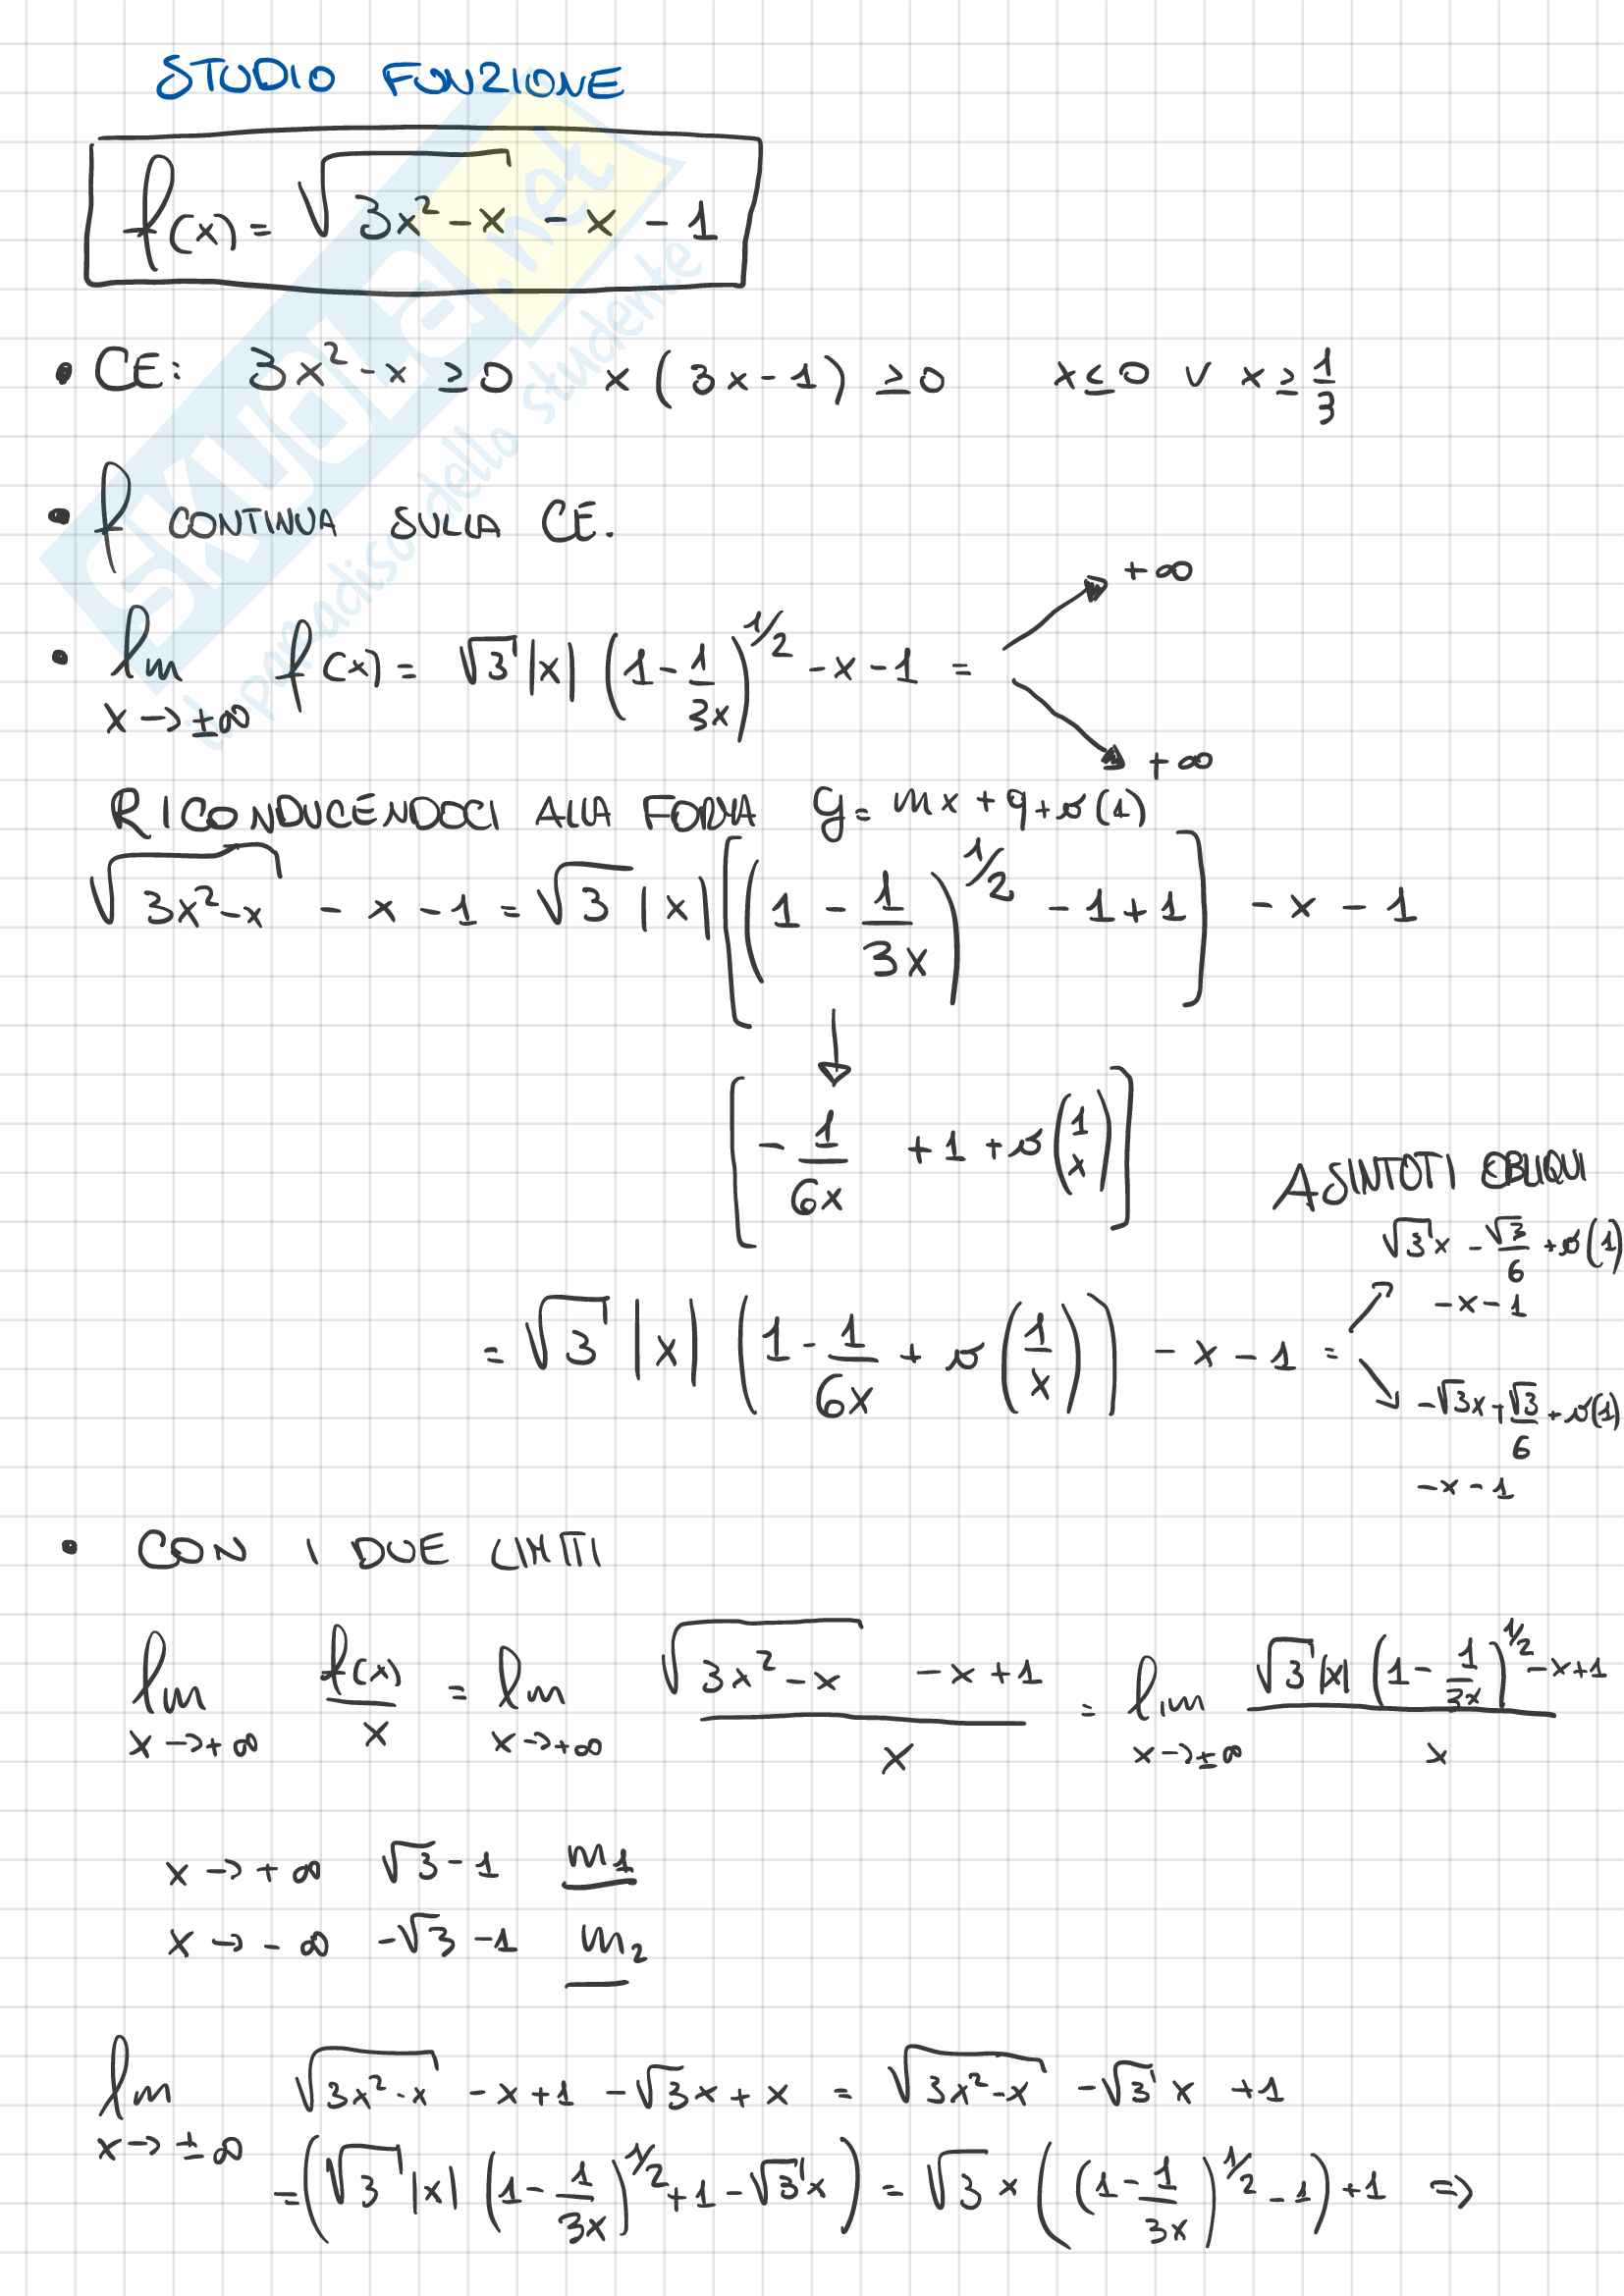 STUDIO FUNZIONE
f(x) = √(3x² - x) - x - 1
• CE: 3x² - x ≥ 0   x (3x - 1) ≥ 0   x ≤ 0 ∨ x ≥ 1/3
• f CONTINUA SULLA CE.
• lim x→±∞ f(x) = √3 |x| (1 - 1/3x)^1/2 - x - 1 = ↗ +∞ ↘ +∞
RICONDUCENDOCI ALLA FORMA y = mx + q + o(1)
√(3x² - x) - x - 1 = √3 |x| [(1 - 1/3x)^1/2 - 1 + 1] - x - 1
↓
[- 1/6x + 1 + o(1/x)]
ASINTOTI OBLIQUI
= √3 |x| (1 - 1/6x + o(1/x)) - x - 1 =
↗ √3 x - √3/6 + o(1) - x - 1
↘ -√3 x + √3/6 + o(1) - x - 1
• CON I DUE LIMITI
lim x→+∞ f(x)/x = lim x→+∞ (√(3x² - x) - x + 1)/x = lim x→±∞ (√3 |x| (1 - 1/3x)^1/2 - x + 1)/x
x → +∞   √3 - 1   m1
x → -∞   -√3 - 1   m2
lim x→±∞ √(3x² - x) - x + 1 - √3 x + x = √(3x² - x) - √3 x + 1
= (√3 |x| (1 - 1/3x)^1/2 + 1 - √3 x) = √3 x ((1 - 1/3x)^1/2 - 1) + 1 ⇒
SKUOLA.net
il paradiso dello studente